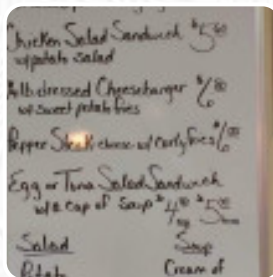 Chicken Salad Sandwich $5.50
w/potato salad
All dressed Cheeseburger $6.00
w/ sweet potato fries
Pepper Steak cheese w/ Curly fries $6.00
Egg or Tuna Salad Sandwich
w/ a cup of Soup $4.00 $5.00
Salad Soup
Potato Cream of